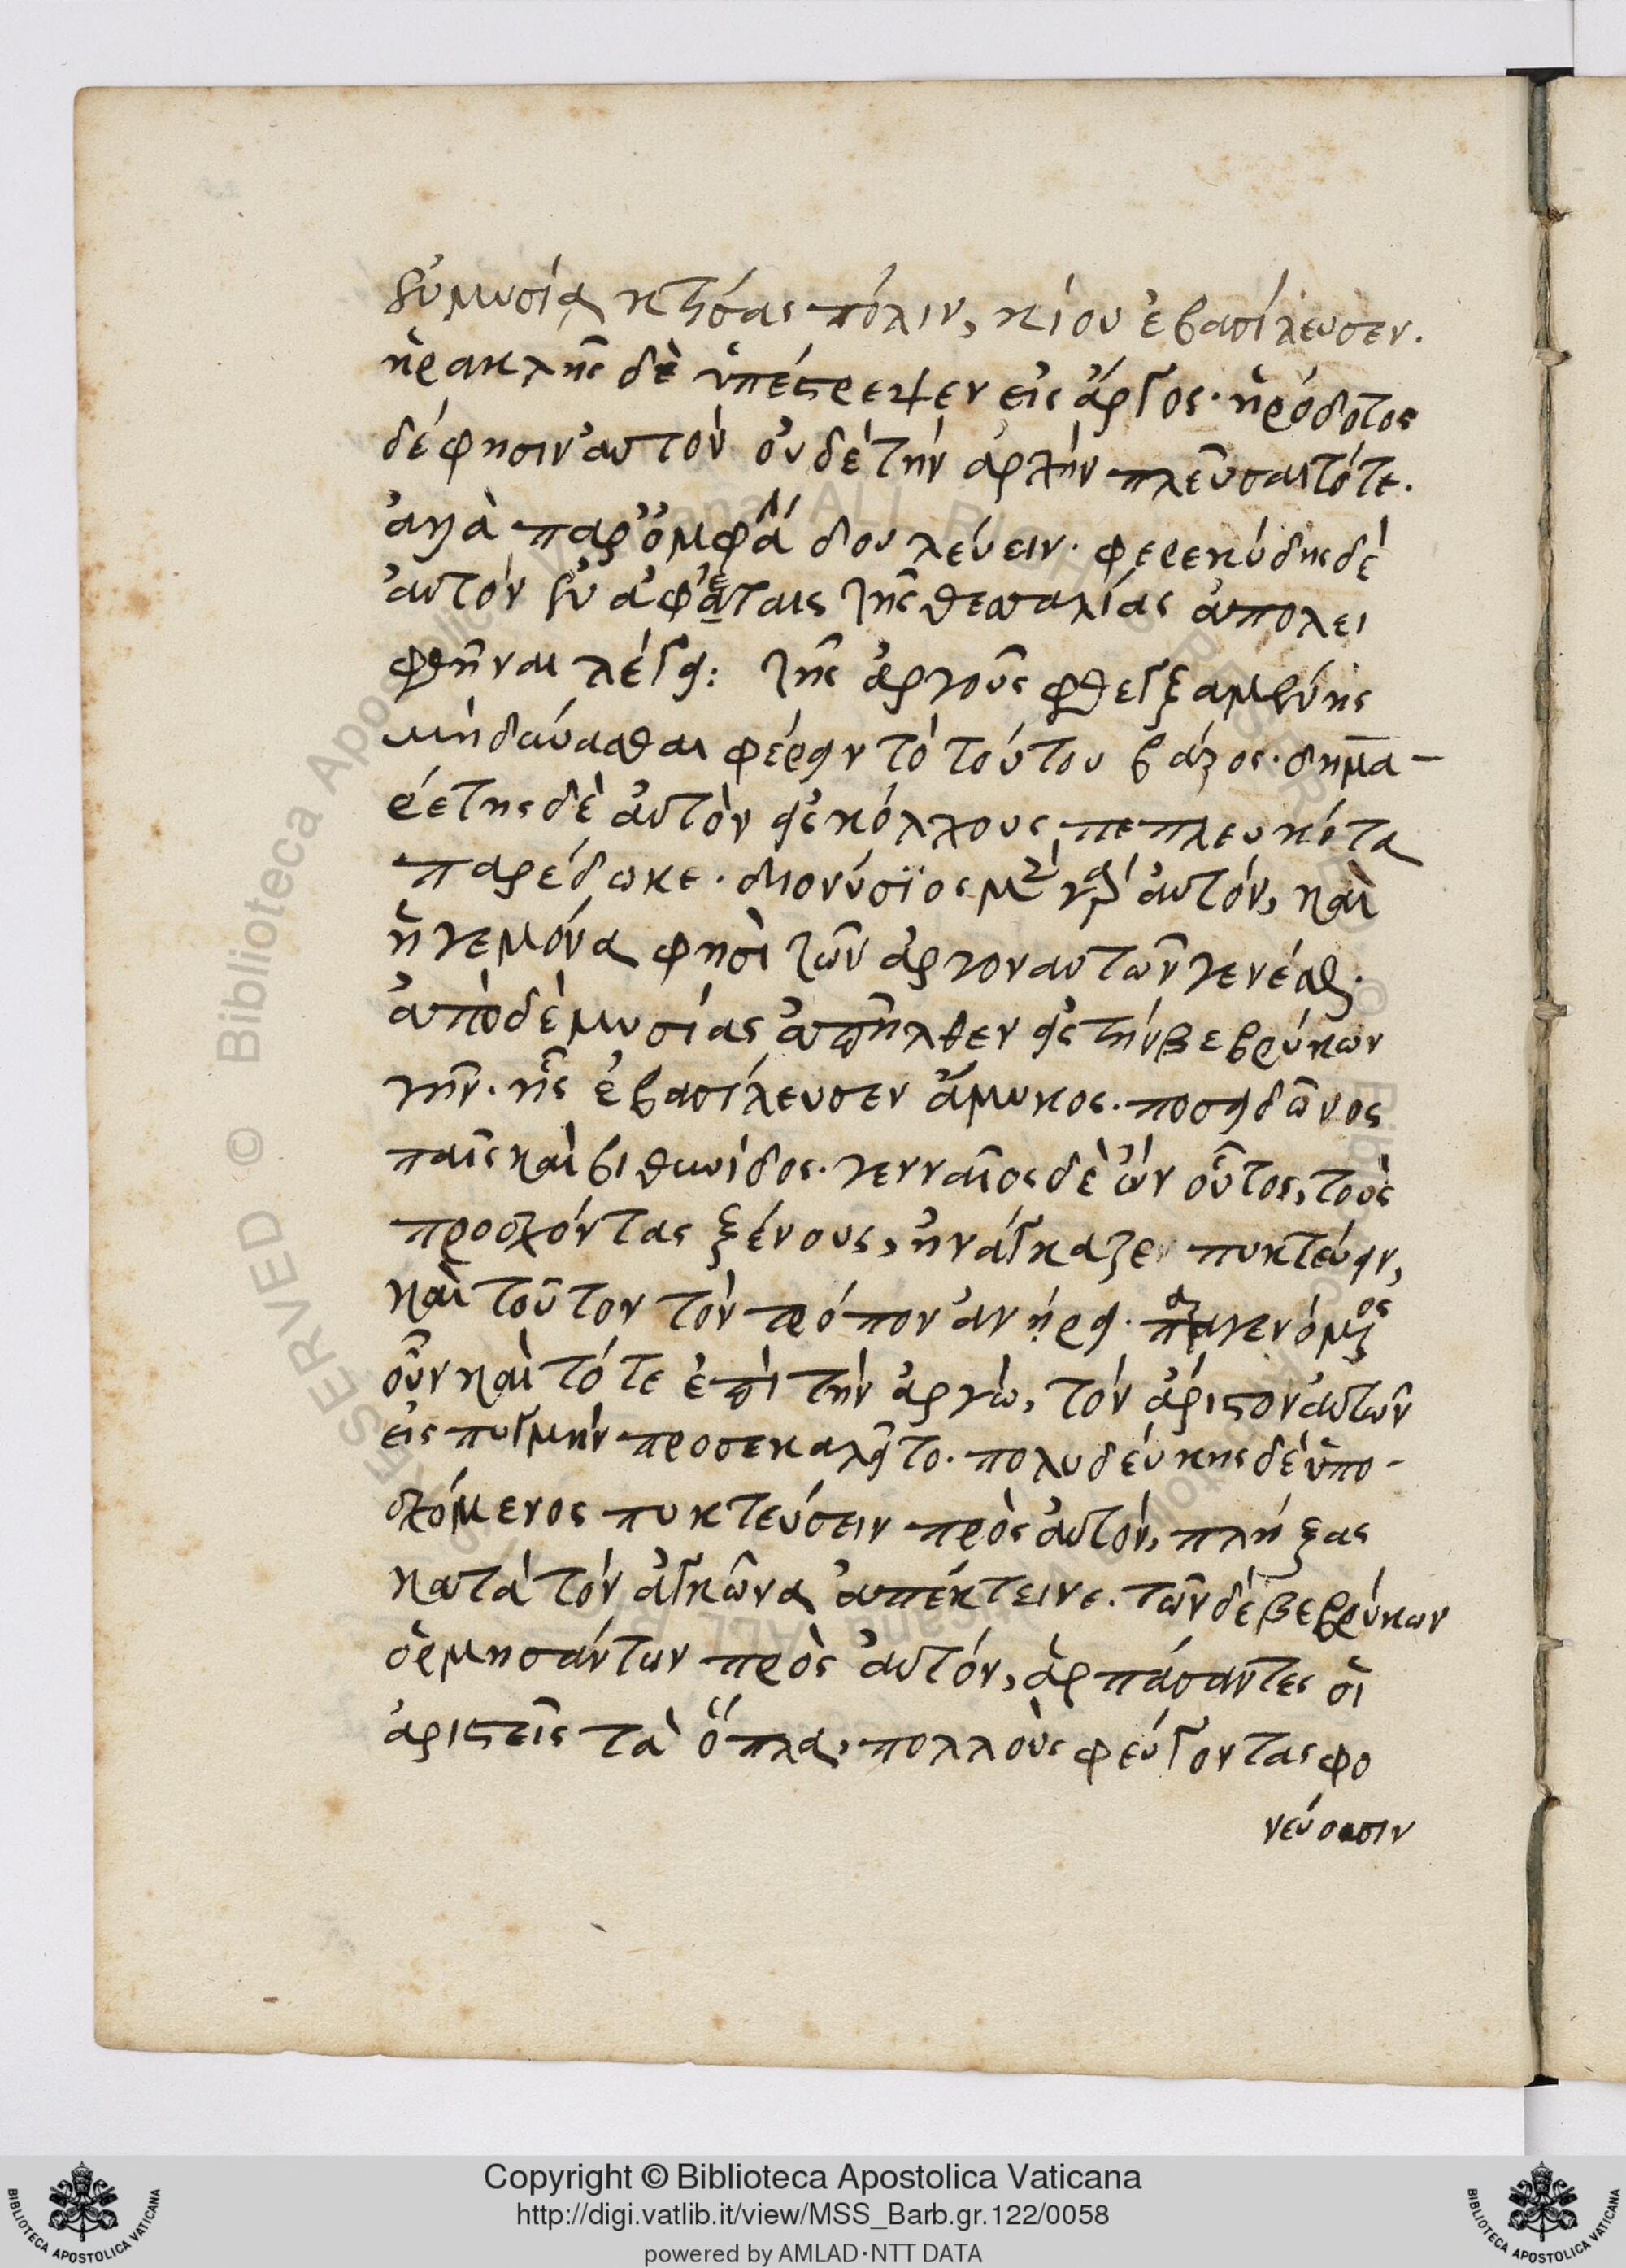 ἐν μυσίᾳ κτίσας πόλιν, κίου ἐβασίλευσεν.
ἡρακλῆς δὲ ὑπέστρεψεν εἰς ἄργος. ἡρόδοτος
δέ φησιν αὐτὸν οὐδὲ τὴν ἀρχὴν πλεῦσαι τότε.
ἀλλὰ παρ' ὀμφάλῃ δουλεύειν. φερεκύδης δὲ
αὐτὸν ἐν ἀφεταῖς τῆς θεσσαλίας ἀπολει
φθῆναι λέγει: τῆς ἀργοῦς φθεγξαμένης
μὴ δύνασθαι φέρειν τὸ τούτου βάρος. δημα-
ρέτης δὲ αὐτὸν εἰς κόλχους πεπλευκότα
παρέδωκε. διονύσϊος μὲν γὰρ αὐτόν, καὶ
ἡγεμόνα φησὶ τῶν ἀργοναυτῶν γενέσθαι.
ἀπὸ δὲ μυσίας ἀπῆλθεν εἰς τὴν βεβρύκων
γῆν. ἧς ἐβασίλευσεν ἄμυκος. ποσειδῶνος
παῖς καὶ βιθυνίδος. γενναῖος δὲ ὢν οὗτος, τοὺς
προσχόντας ξένους, ἠνάγκαζεν πυκτεύειν,
καὶ τοῦτον τὸν τρόπον ἀνῄρει. παραγενόμενος
οὖν καὶ τότε ἐπὶ τὴν ἀργώ, τὸν ἄριστον αὐτῶν
εἰς πυγμὴν προσεκαλεῖτο. πολυδεύκης δὲ ὑπο-
σχόμενος πυκτεύσειν πρὸς αὐτόν, πλήξας
κατὰ τὸν ἀγκῶνα ἀπέκτεινε. τῶν δὲ βεβρύκων
ὁρμησάντων πρὸς αὐτόν, ἁρπάσαντες οἱ
ἀριστεῖς τὰ ὅπλα, πολλοὺς φεύγοντας φο
νεύουσιν
© Biblioteca Apostolica Vaticana ALL RIGHTS RESERVED
Copyright © Biblioteca Apostolica Vaticana
http://digi.vatlib.it/view/MSS_Barb.gr.122/0058
powered by AMLAD·NTT DATA
BIBLIOTECA APOSTOLICA VATICANA
BIBLIOTECA APOSTOLICA VATICANA